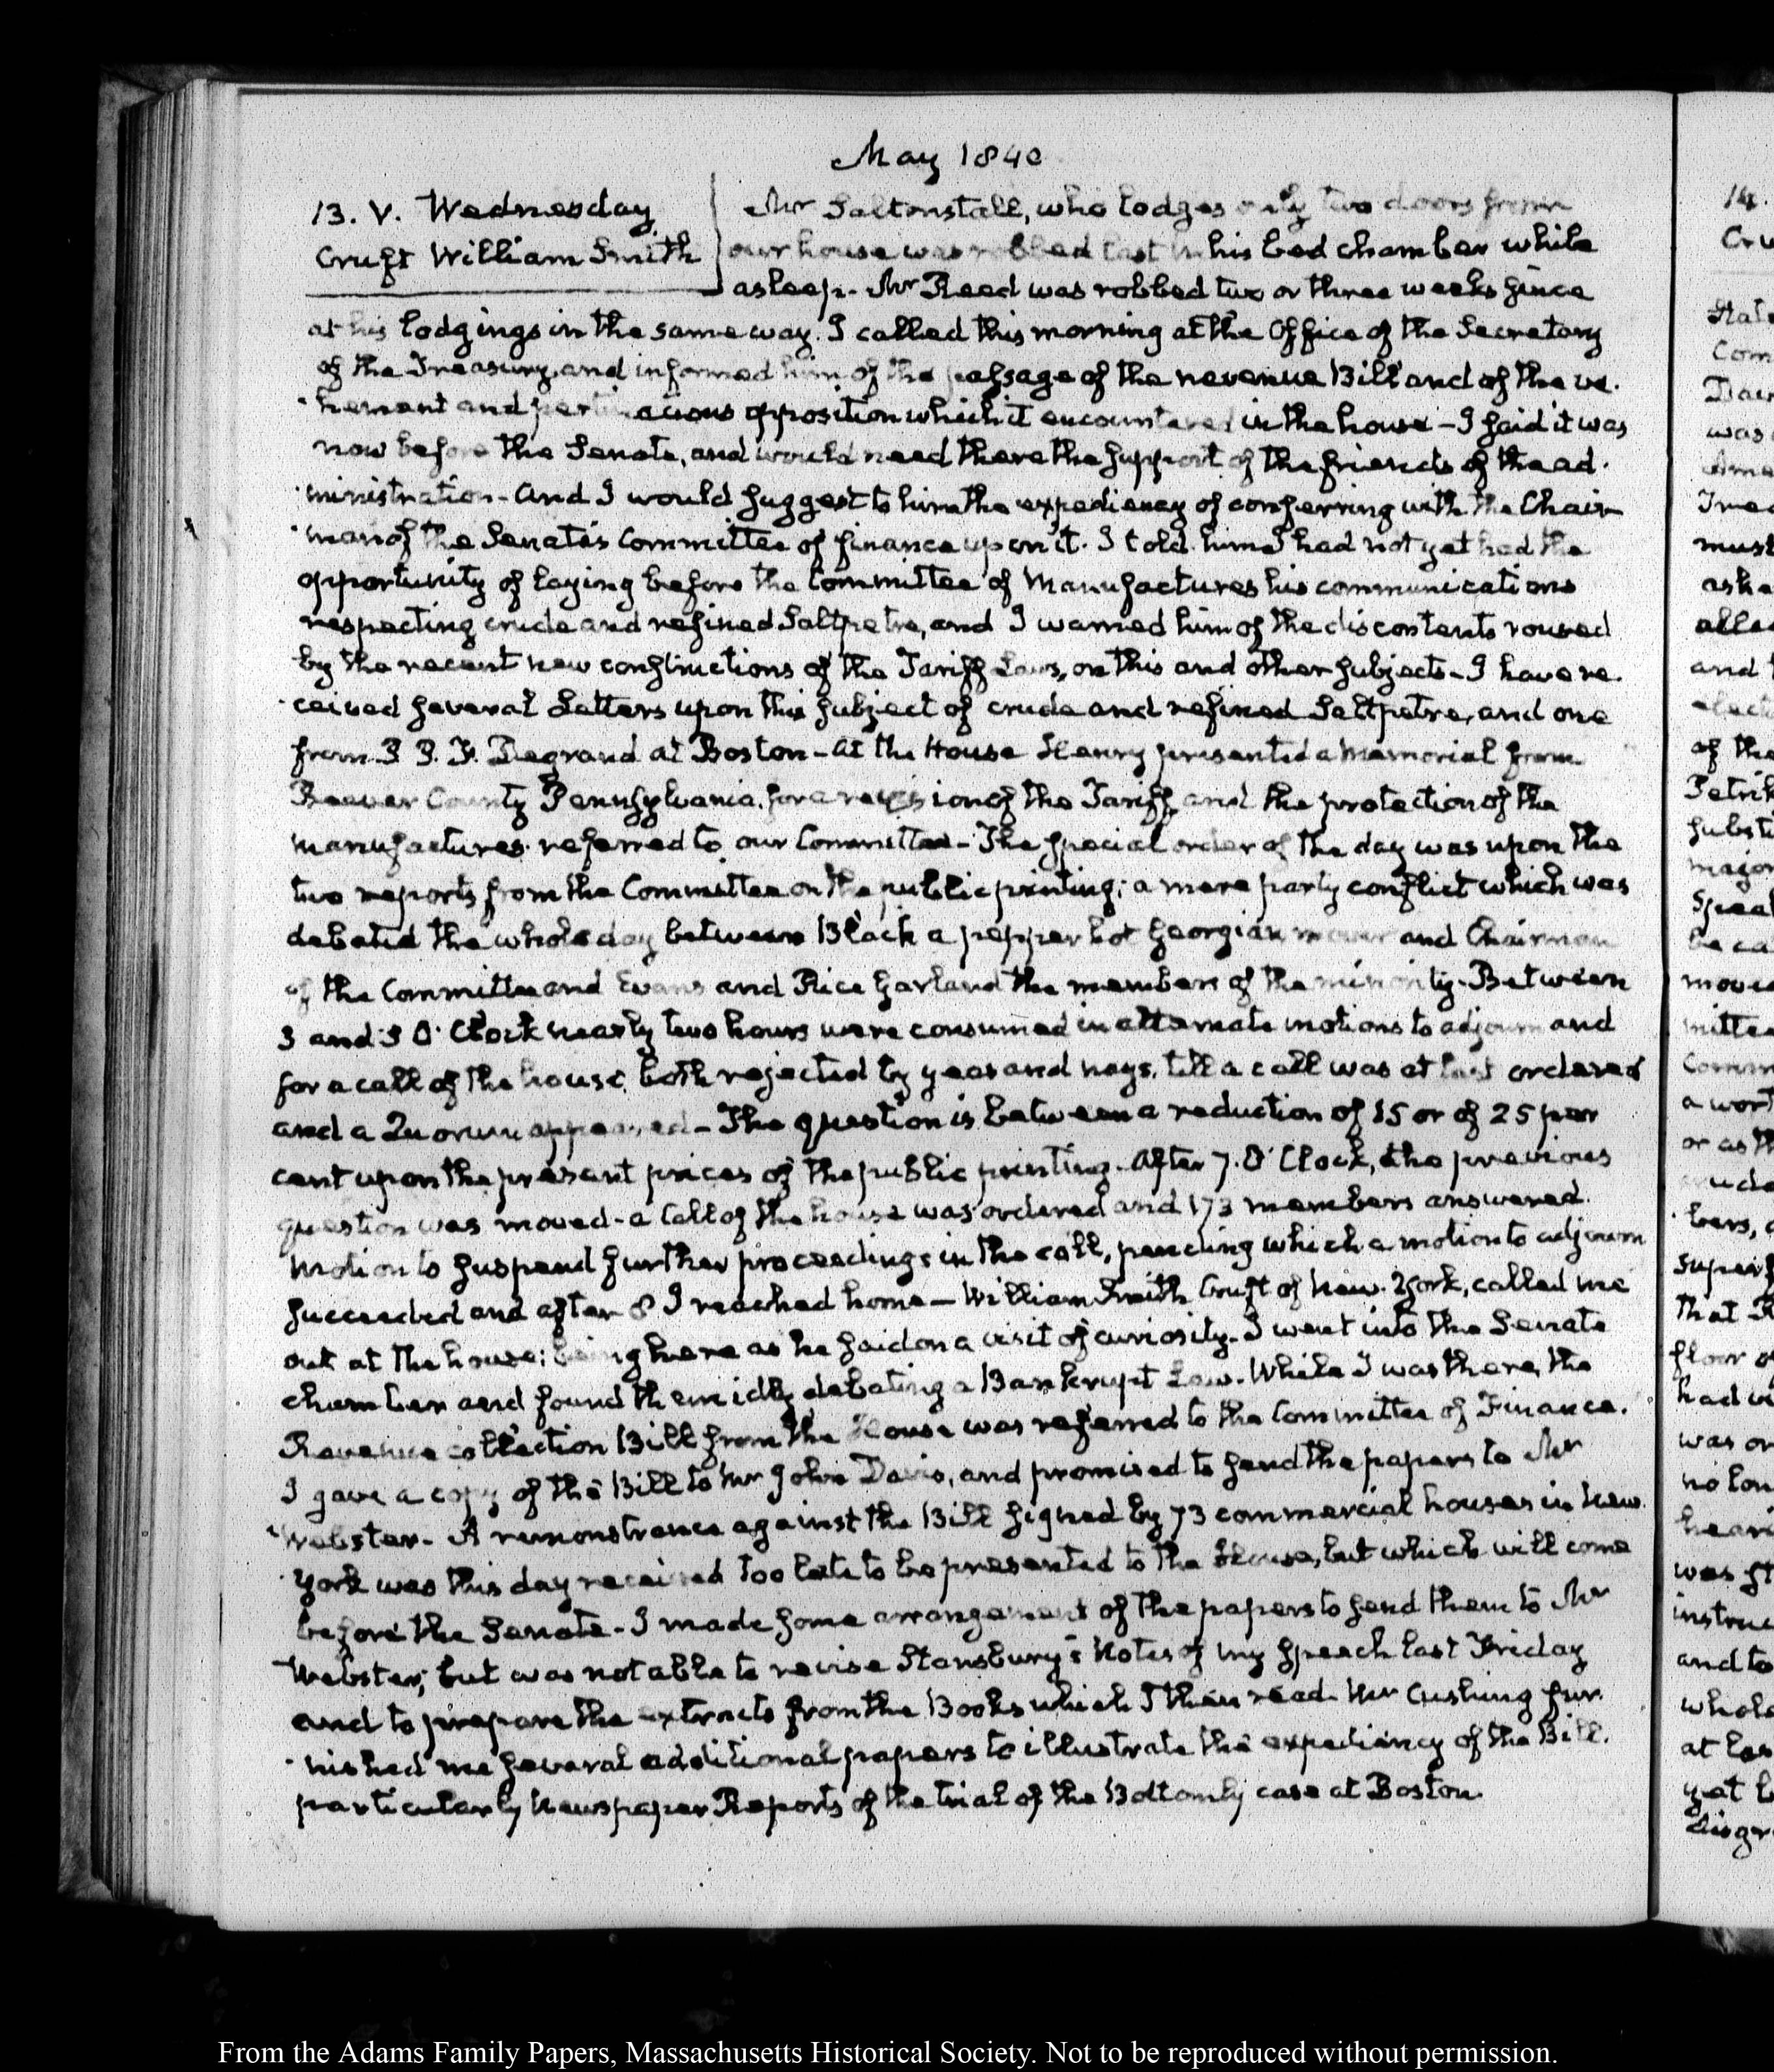 May 1840
13. V. Wednesday
Cruft William Smith
Mr Saltonstall, who lodges only two doors from
our house was robbed last in his bed chamber while
asleep. Mr Reed was robbed two or three weeks since
at his lodgings in the same way. I called this morning at the Office of the Secretary
of the Treasury, and informed him of the passage of the revenue Bill and of the ve-
hement and pertinacious opposition which it encountered in the house – I said it was
now before the Senate, and would need there the support of the friends of the ad-
ministration – And I would suggest to him the expediency of conferring with the Chair-
man of the Senate's Committee of finance upon it. I told him I had not yet had the
opportunity of laying before the Committee of Manufactures his communications
respecting crude and refined Saltpetre, and I warned him of the discontents roused
by the recent new constructions of the Tariff Laws, on this and other subjects – I have re-
ceived several Letters upon this subject of crude and refined Saltpetre, and one
from P. P. F. Degrand at Boston – At the House Henry presented a Memorial from
Beaver County Pennsylvania, for a revision of the Tariff, and the protection of the
manufactures referred to our Committee – The special order of the day was upon the
two reports from the Committee on the public printing; a mere party conflict which was
debated the whole day between Black a pepper hot Georgian mover and Chairman
of the Committee and Evans and Rice Garland the members of the minority. Between
3 and 5 O' Clock nearly two hours were consumed in alternate motions to adjourn and
for a call of the house, both rejected by yeas and nays, till a call was at last ordered
and a Quorum appeared – The question is between a reduction of 15 or of 25 per
cent upon the present prices of the public printing. After 7. O' Clock, the previous
question was moved – a Call of the house was ordered and 173 members answered.
Motion to suspend further proceedings in the call, pending which a motion to adjourn
succeeded and after 8 I reached home – William Smith Cruft of New-York, called me
out at the house; being here as he said on a visit of curiosity. I went into the Senate
chamber and found them idly debating a Bankrupt Law. While I was there, the
Revenue collection Bill from the House was referred to the Committee of Finance.
I gave a copy of the Bill to Mr John Davis, and promised to send the papers to Mr
Webster – A remonstrance against the Bill signed by 73 commercial houses in New
York was this day received too late to be presented to the House, but which will come
before the Senate – I made some arrangement of the papers to send them to Mr
Webster; but was not able to revise Stansbury's Notes of my speech last Friday
and to prepare the extracts from the Books which I then read. Mr Cushing fur-
nished me several additional papers to illustrate the expediency of the Bill.
particularly Newspaper Reports of the trial of the Bottomly case at Boston.
From the Adams Family Papers, Massachusetts Historical Society. Not to be reproduced without permission.